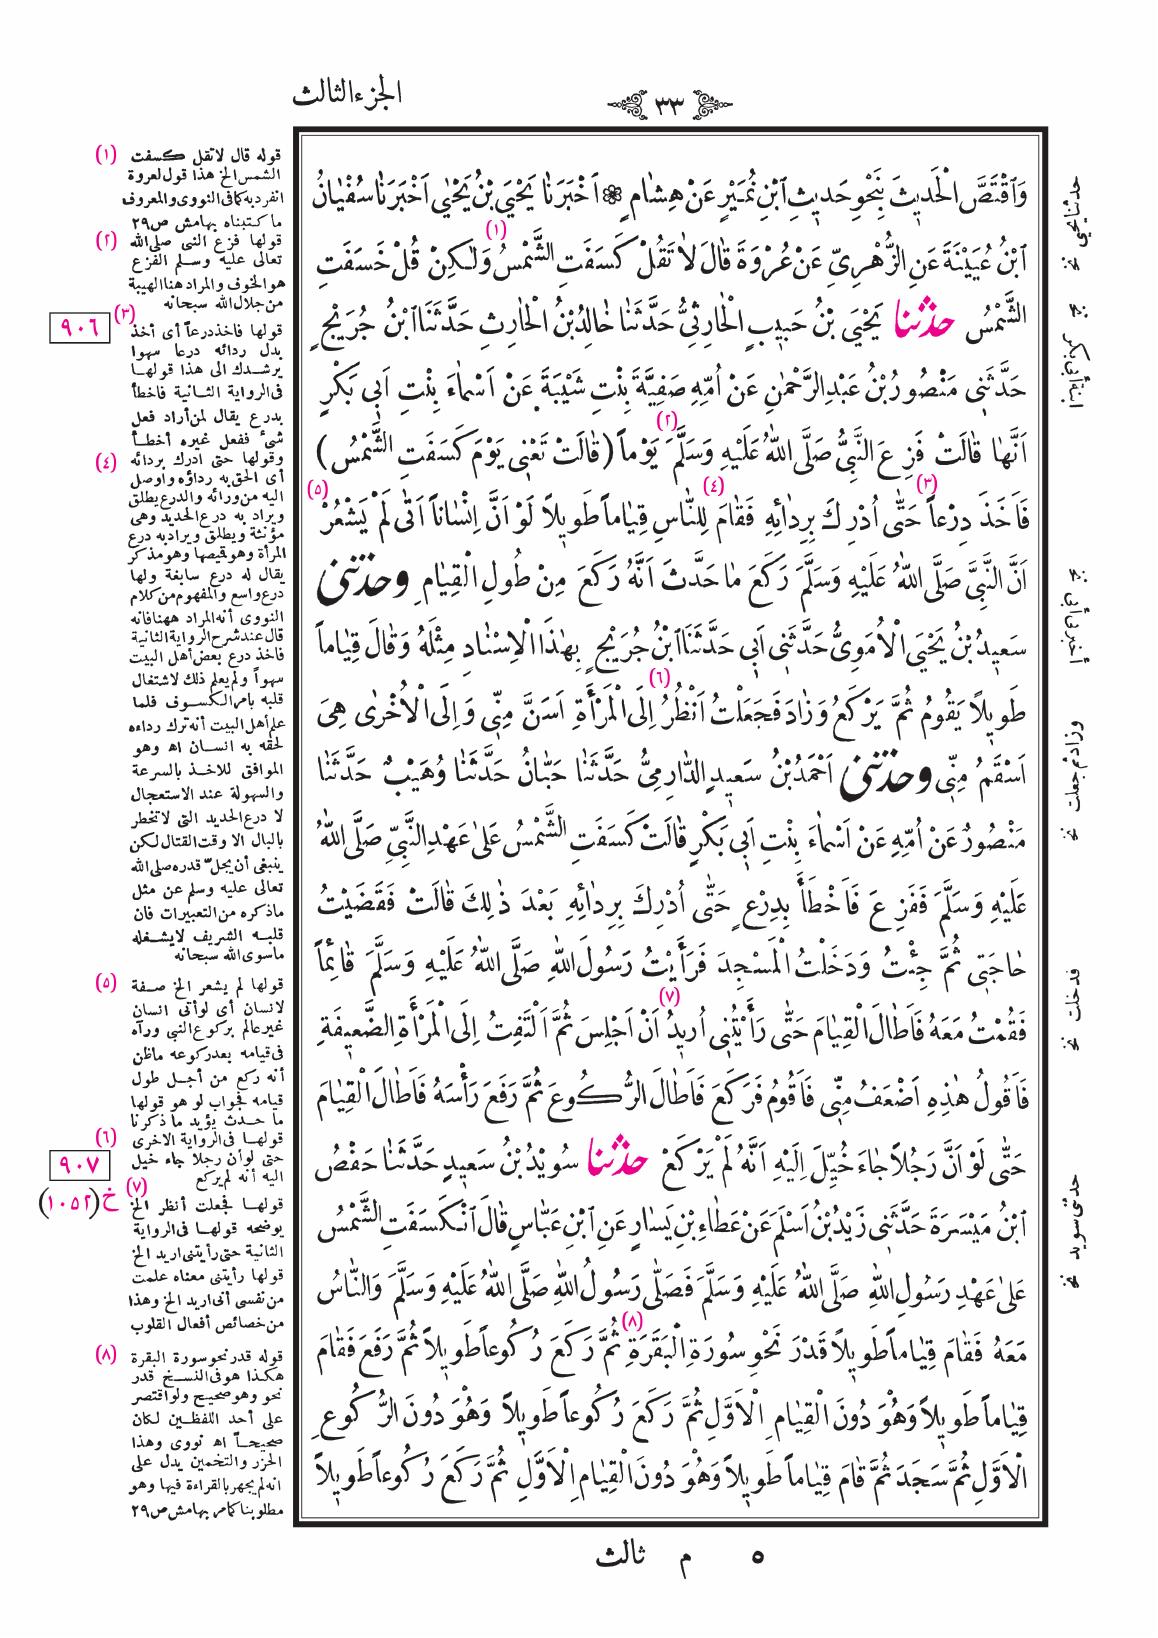 الجزء الثالث
٣٣
وَاقْتَصَّ الْحَدِيثَ بِنَحْوِ حَدِيثِ ابْنِ نُمَيْرٍ عَنْ هِشَامٍ ❁ اَخْبَرَنَا يَحْيَى بْنُ يَحْيٰى اَخْبَرَنَا سُفْيَانُ
ابْنُ عُيَيْنَةَ عَنِ الزُّهْرِىِّ عَنْ عُرْوَةَ قَالَ لَا تَقُلْ كَسَفَتِ الشَّمْسُ (١) وَلٰكِنْ قُلْ خَسَفَتِ
الشَّمْسُ حدثنا يَحْيَى بْنُ حَبِيبٍ الْحَارِثِىُّ حَدَّثَنَا خَالِدُ بْنُ الْحَارِثِ حَدَّثَنَا ابْنُ جُرَيْجٍ
حَدَّثَنِى مَنْصُورُ بْنُ عَبْدِ الرَّحْمٰنِ عَنْ اُمِّهِ صَفِيَّةَ بِنْتِ شَيْبَةَ عَنْ اَسْمَاءَ بِنْتِ اَبِى بَكْرٍ
اَنَّهَا قَالَتْ فَزِعَ النَّبِىُّ صَلَّى اللّٰهُ عَلَيْهِ وَسَلَّمَ (٢) يَوْماً (قَالَتْ تَعْنِى يَوْمَ كَسَفَتِ الشَّمْسُ)
فَاَخَذَ دِرْعاً (٣) حَتّٰى اُدْرِكَ بِرِدَائِهِ (٤) فَقَامَ لِلنَّاسِ قِيَاماً طَوِيلاً لَوْ اَنَّ اِنْسَاناً اَتٰى لَمْ يَشْعُرْ (٥)
اَنَّ النَّبِىَّ صَلَّى اللّٰهُ عَلَيْهِ وَسَلَّمَ رَكَعَ مَا حَدَّثَ اَنَّهُ رَكَعَ مِنْ طُولِ الْقِيَامِ وحدثنى
سَعِيدُ بْنُ يَحْيَى الْاُمَوِىُّ حَدَّثَنِى اَبِى حَدَّثَنَا ابْنُ جُرَيْجٍ بِهٰذَا الْاِسْنَادِ مِثْلَهُ وَقَالَ قِيَاماً
طَوِيلاً يَقُومُ ثُمَّ يَرْكَعُ وَزَادَ فَجَعَلْتُ اَنْظُرُ (٦) اِلَى الْمَرْأَةِ اَسَنَّ مِنِّى وَاِلَى الْاُخْرٰى هِىَ
اَسْقَمُ مِنِّى وحدثنى اَحْمَدُ بْنُ سَعِيدٍ الدَّارِمِىُّ حَدَّثَنَا حَبَّانُ حَدَّثَنَا وُهَيْبٌ حَدَّثَنَا
مَنْصُورٌ عَنْ اُمِّهِ عَنْ اَسْمَاءَ بِنْتِ اَبِى بَكْرٍ قَالَتْ كَسَفَتِ الشَّمْسُ عَلٰى عَهْدِ النَّبِىِّ صَلَّى اللّٰهُ
عَلَيْهِ وَسَلَّمَ فَفَزِعَ فَاَخْطَأَ بِدِرْعٍ حَتّٰى اُدْرِكَ بِرِدَائِهِ بَعْدَ ذٰلِكَ قَالَتْ فَقَضَيْتُ
حَاجَتِى ثُمَّ جِئْتُ وَدَخَلْتُ الْمَسْجِدَ فَرَأَيْتُ رَسُولَ اللّٰهِ صَلَّى اللّٰهُ عَلَيْهِ وَسَلَّمَ قَائِماً
فَقُمْتُ مَعَهُ فَاَطَالَ الْقِيَامَ حَتّٰى رَأَيْتُنِى (٧) اُرِيدُ اَنْ اَجْلِسَ ثُمَّ اَلْتَفِتُ اِلَى الْمَرْأَةِ الضَّعِيفَةِ
فَاَقُولُ هٰذِهِ اَضْعَفُ مِنِّى فَاَقُومُ فَرَكَعَ فَاَطَالَ الرُّكُوعَ ثُمَّ رَفَعَ رَأْسَهُ فَاَطَالَ الْقِيَامَ
حَتّٰى لَوْ اَنَّ رَجُلاً جَاءَ خُيِّلَ اِلَيْهِ اَنَّهُ لَمْ يَرْكَعْ حدثنا سُوَيْدُ بْنُ سَعِيدٍ حَدَّثَنَا حَفْصُ
ابْنُ مَيْسَرَةَ حَدَّثَنِى زَيْدُ بْنُ اَسْلَمَ عَنْ عَطَاءِ بْنِ يَسَارٍ عَنِ ابْنِ عَبَّاسٍ قَالَ انْكَسَفَتِ الشَّمْسُ
عَلٰى عَهْدِ رَسُولِ اللّٰهِ صَلَّى اللّٰهُ عَلَيْهِ وَسَلَّمَ فَصَلّٰى رَسُولُ اللّٰهِ صَلَّى اللّٰهُ عَلَيْهِ وَسَلَّمَ وَالنَّاسُ
مَعَهُ فَقَامَ قِيَاماً طَوِيلاً قَدْرَ نَحْوِ سُورَةِ الْبَقَرَةِ (٨) ثُمَّ رَكَعَ رُكُوعاً طَوِيلاً ثُمَّ رَفَعَ فَقَامَ
قِيَاماً طَوِيلاً وَهُوَ دُونَ الْقِيَامِ الْاَوَّلِ ثُمَّ رَكَعَ رُكُوعاً طَوِيلاً وَهُوَ دُونَ الرُّكُوعِ
الْاَوَّلِ ثُمَّ سَجَدَ ثُمَّ قَامَ قِيَاماً طَوِيلاً وَهُوَ دُونَ الْقِيَامِ الْاَوَّلِ ثُمَّ رَكَعَ رُكُوعاً طَوِيلاً
حدثنا يحيى نخ
نخ ابنة أبى بكر
أخبرنى أبى نخ
وزاد ثم جعلت نخ
فدخلت نخ
حدثنى سويد نخ
(١) قوله قال لا تقل كسفت
الشمس الخ هذا قول لعروة
انفرد به كما فى النووى والمعروف
ما كتبناه بهامش ص٢٩
(٢) قولها فزع النبى صلى الله
تعالى عليه وسلم الفزع
هو الخوف والمراد هنا الهيبة
من جلال الله سبحانه
٩٠٦
(٣) قولها فاخذ درعاً أى أخذ
بدل ردائه درعا سهوا
يرشدك الى هذا قولها
فى الرواية الثانية فاخطأ
بدرع يقال لمن أراد فعل
شئ ففعل غيره أخطأ
(٤) وقولها حتى ادرك بردائه
أى الحق به رداؤه واوصل
اليه من ورائه والدرع يطلق
ويراد به درع الحديد وهى
مؤنثة ويطلق ويراد به درع
المرأة وهو قميصها وهو مذكر
يقال له درع سابغة ولها
درع واسع والمفهوم من كلام
النووى أنه المراد ههنا فانه
قال عند شرح الرواية الثانية
فاخذ درع بعض أهل البيت
سهواً ولم يعلم ذلك لاشتغال
قلبه بامر الكسوف فلما
علم أهل البيت أنه ترك رداءه
لحقه به انسان اه وهو
الموافق للاخذ بالسرعة
والسهولة عند الاستعجال
لا درع الحديد التى لا تخطر
بالبال الا وقت القتال لكن
ينبغى أن يجلّ قدره صلى الله
تعالى عليه وسلم عن مثل
ما ذكره من التعبيرات فان
قلبه الشريف لا يشغله
ما سوى الله سبحانه
(٥) قولها لم يشعر الخ صفة
لانسان أى لو أتى انسان
غير عالم بركوع النبى ورآه
فى قيامه بعد ركوعه ما ظن
أنه ركع من أجل طول
قيامه فجواب لو هو قولها
ما حدث يؤيد ما ذكرنا
قولها فى الرواية الاخرى
حتى لو أن رجلا جاء خيل
اليه أنه لم يركع
(٦)
٩٠٧
خ(١٠٥٢)
(٧) قولها فجعلت أنظر الخ
يوضحه قولها فى الرواية
الثانية حتى رأيتنى اريد الخ
قولها رأيتنى معناه علمت
من نفسى أنى اريد الخ وهذا
من خصائص أفعال القلوب
(٨) قوله قدر نحو سورة البقرة
هكذا هو فى النسخ قدر
نحو وهو صحيح ولو اقتصر
على أحد اللفظين لكان
صحيحاً اه نووى وهذا
الحزر والتخمين يدل على
انه لم يجهر بالقراءة فيها وهو
مطلوبنا كما مر بهامش ص٢٩
٥ م ثالث